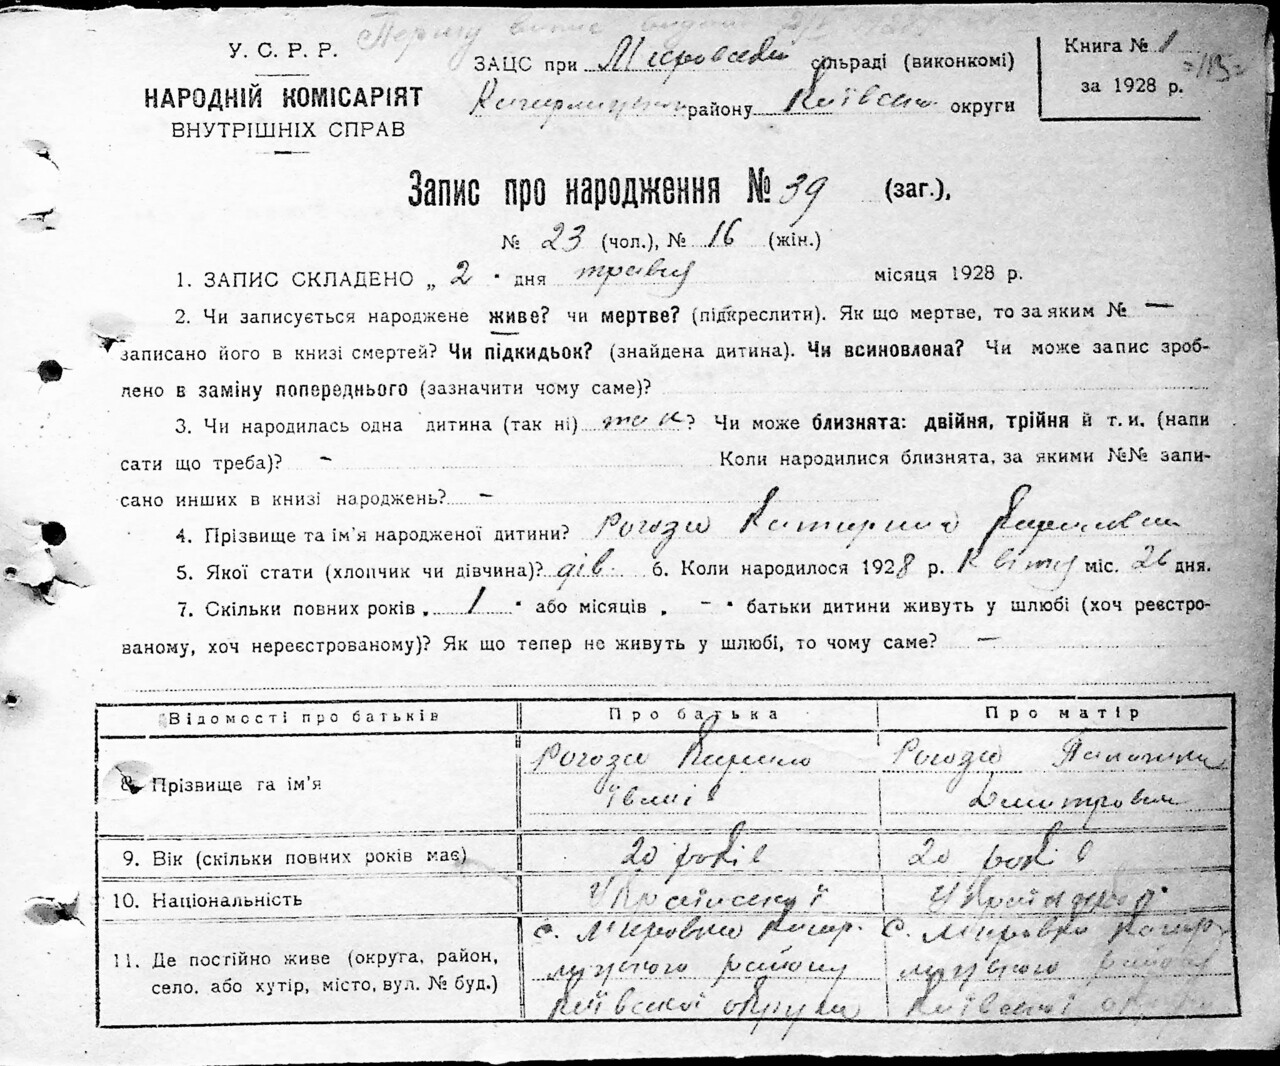 Першу випис видан
У. С. Р. Р.
НАРОДНІЙ КОМІСАРІЯТ
ВНУТРІШНІХ СПРАВ
ЗАЦС при Мировській сільраді (виконкомі)
Кагарлицьком району Київської округи
Книга № 1
за 1928 р.
Запис про народження № 39 (заг.),
№ 23 (чол.), № 16 (жін.)
1. ЗАПИС СКЛАДЕНО „ 2 " дня травня місяця 1928 р.
2. Чи записується народжене живе? чи мертве? (підкреслити). Як що мертве, то за яким № —
записано його в книзі смертей? Чи підкидьок? (знайдена дитина). Чи всиновлена? Чи може запис зроб-
лено в заміну попереднього (зазначити чому саме)?
3. Чи народилась одна дитина (так ні) так? Чи може близнята: двійня, трійня й т. и. (напи
сати що треба)? - Коли народилися близнята, за якими №№ запи-
сано инших в книзі народжень? -
4. Прізвище та ім'я народженої дитини? Рогоза Катерина Кирилівна
5. Якої статі (хлопчик чи дівчина)? дів. 6. Коли народилося 1928 р. Квітня міс. 26 дня.
7. Скільки повних років „ 1 " або місяців „ - " батьки дитини живуть у шлюбі (хоч реєстро-
ваному, хоч нереєстрованому)? Як що тепер не живуть у шлюбі, то чому саме? —
Відомості про батьків Про батька Про матір
8. Прізвище та ім'я Рогоза Кирило Рогоза Палажка
Івані в Дмитровна
9. Вік (скільки повних років має) 20 років 20 років
10. Національність Української Української
11. Де постійно живе (округа, район, с. Мировка Кагар- с. Мировка Кагар-
село, або хутір, місто, вул. № буд.) лицького району лицького району
Київської округи Київської округи